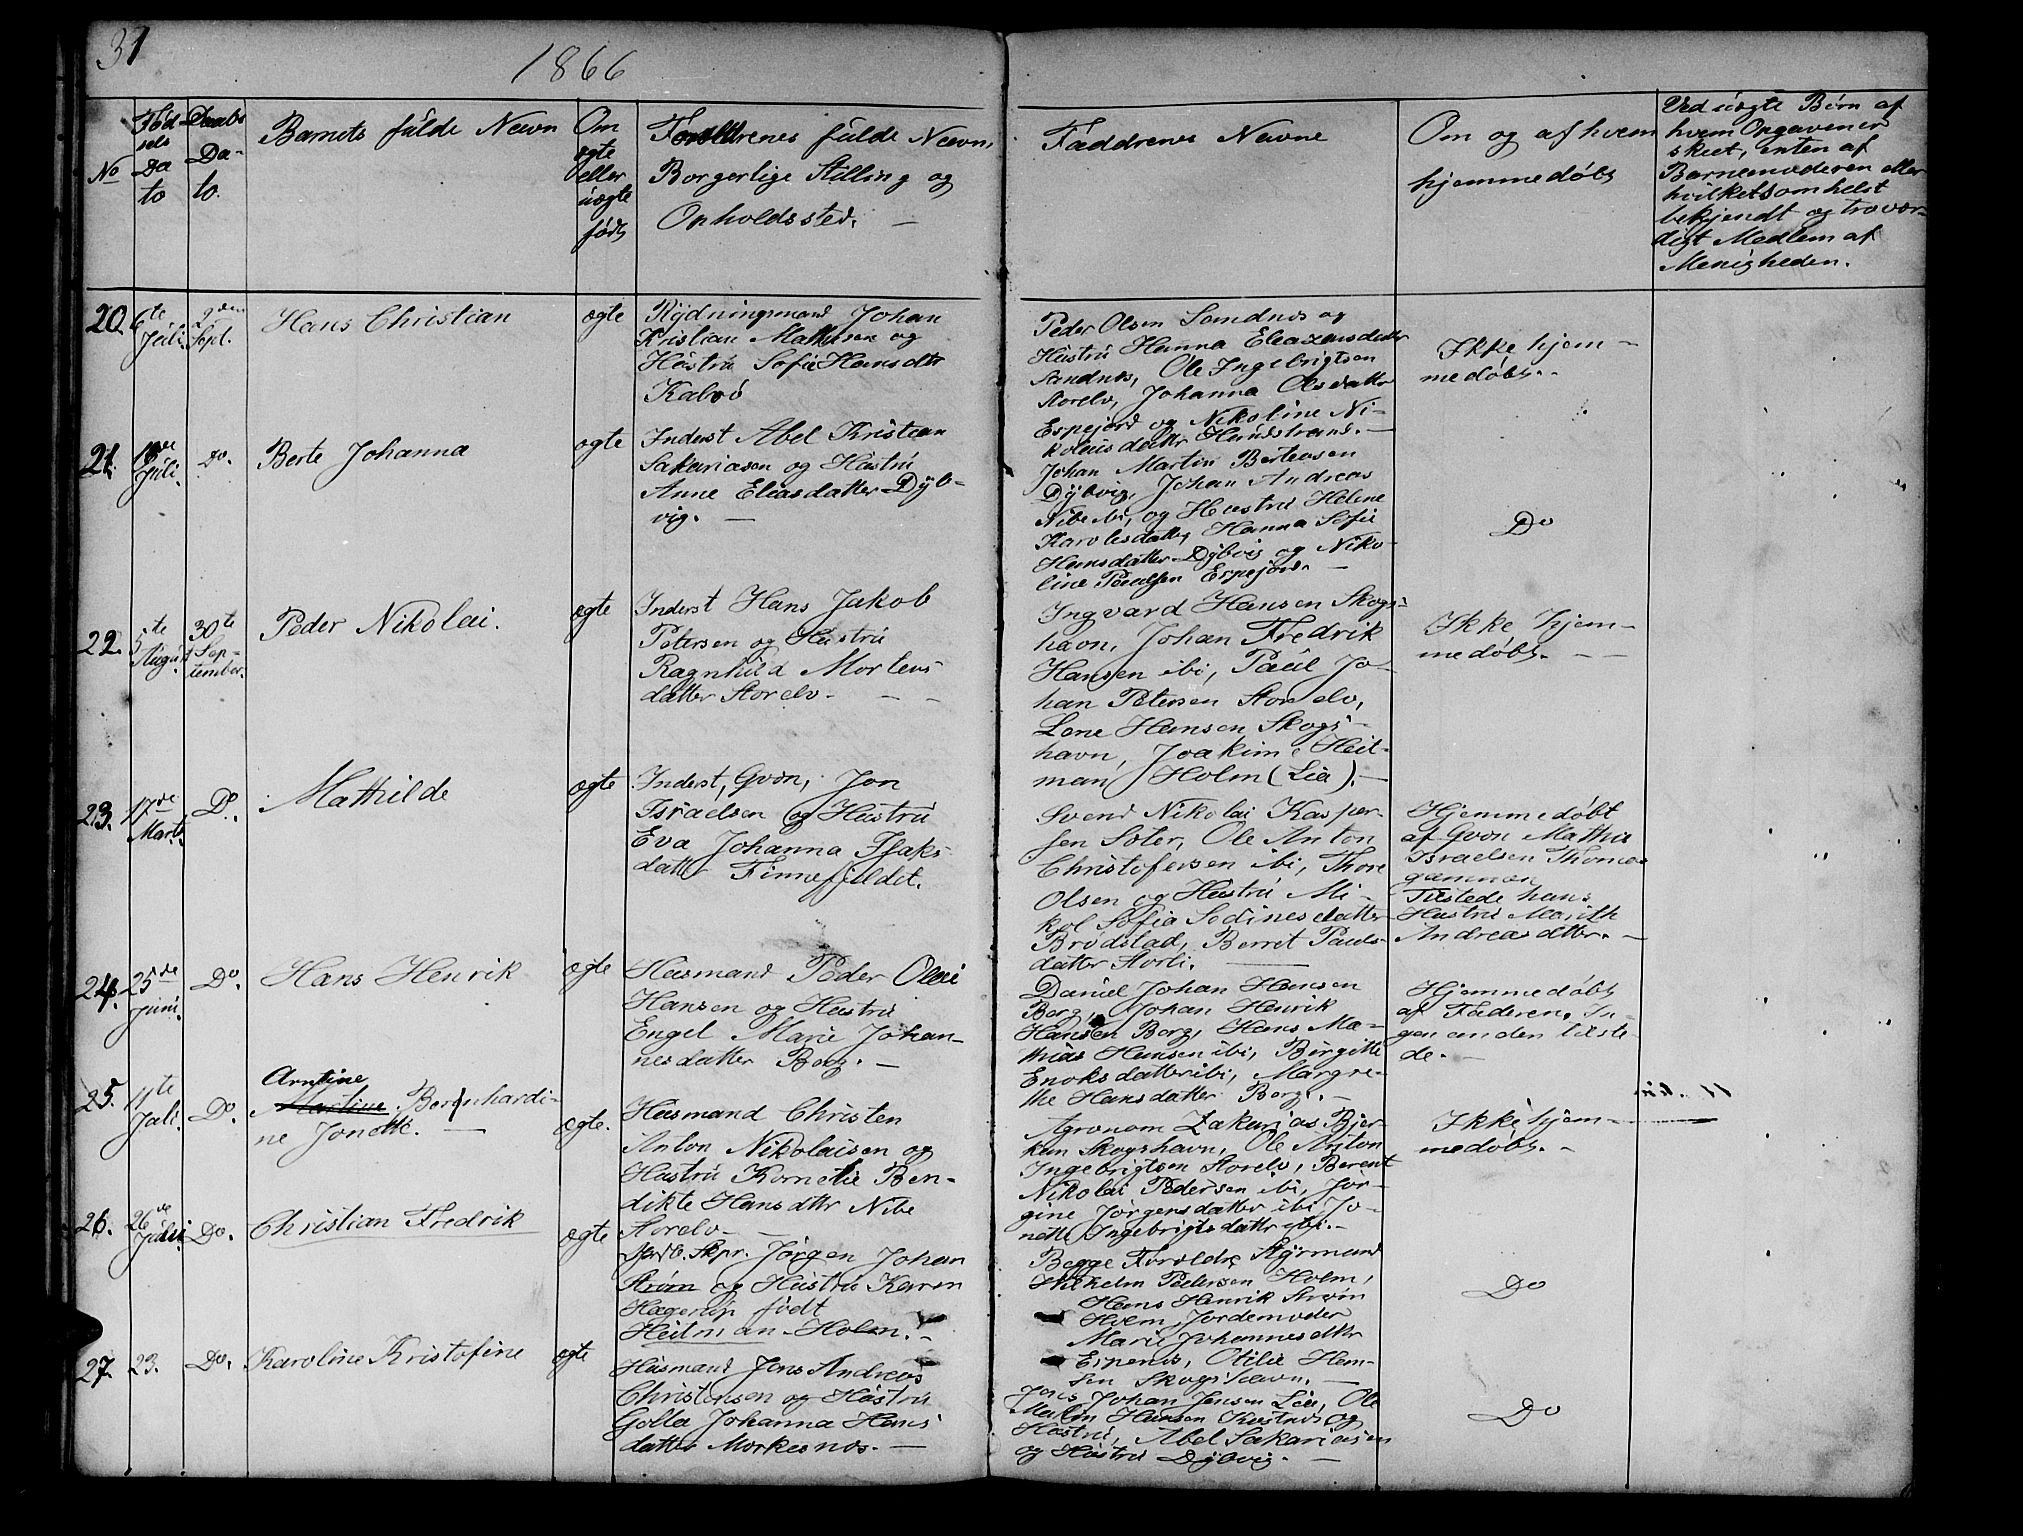 31
1866
No
Fød
sels
Da
to
Daabs
Da-
to.
Barnets fulde Navn
Om
ægte
eller
uægte
født
Forældrenes fulde Navn,
Borgerlige Stilling og
Opholdssted. —
Faddrenes Navne
Om og af hvem
hjemmedøbt
Ved uægte Børn af
hvem Opgaven er
skeet, enten af
Barnemoderen eller
hvilketsomhelst
bekjendt og trovær-
digt Medlem af
Menigheden.
20.
6te
Juli
2den
Sept.
Hans Christian
ægte
Rydningsmand Johan
Kristian Mathisen og
Hustru Sofie Hansdtr
Kalvø
Peder Olsen Sandnes og
Hustru Hanna Eleazersdatter
Sandnes, Ole Ingebrigtsen
Storelv, Johanna Olsdatter
Espejord og Nikoline Ni-
kolaisdattr Hundstrand. —
Ikke hjem-
medøbt.
21.
Juli.
Do.
Berte Johanna
ægte
Inderst Abel Kristian
Sakariasen og Hustru
Anne Eliasdatter Dyb-
vig. —
Johan Martin Berteusen
Dybvig, Johan Andreas
Nibe ibi, og Hustru Helene
Karolesdatter, Hanna Sofie
Hansdatter Dybvig og Niko-
line Paulsen Espejord. —
Do
22.
5te
August
30te
Sep-
tember.
Peder Nikolai.
ægte
Inderst Hans Jakob
Petersen og Hustru
Ragnhild Mortens
datter Storelv. — —
Ingvard Hansen Skogs-
havn, Johan Fredrik
Hansen ibi, Paul Jo-
han Petersen Storelv,
Lone Hansen Skogs-
havn, Joakim Heit-
man Holm (Lia). —
Ikke hjem-
medøbt. —
23.
17de
Marts.
Do.
Mathilde
ægte
Inderst, Gvæn, Jon
Israelsen og Hustru
Eva Johanna Isaks-
datter Finnefjeldet.
Svend Nikolai Kasper-
sen Soter, Ole Anton
Christofersen ibi, Thore
Olsen og Hustru Mi-
kol Sofia Sedinesdatter
Brødstad, Berret Pauls-
datter Storli. —
Hjemmedøbt
af Gvæn Mathis
Israelsen Thomas
gammen
Tilstede hans
Hustru Marith
Andreasdtter. —
24.
25de
Juni.
Do.
Hans Henrik
ægte
Husmand Peder Olai
Hansen og Hustru
Engel Marie Johan-
nesdatter Borg. —
Daniel Johan Hansen
Borg, Johan Henrik
Hansen Borg, Hans Ma-
thias Hansen ibi, Birgitte
Enoksdatter ibi, Margre-
the Hansdatter Borg. —
Hjemmedøbt
af Faderen, In-
gen anden tilste-
de. —
25.
11te
Juli.
Do.
Arntine
Martine Bernhardi-
ne Jonette. —
ægte.
Husmand Christen
Anton Nikolaisen og
Hustru Kornelie Ben-
dikte Hansdtr Nibe
Storelv —
Agronom Zakarias Bjer-
kan Skogshavn, Ole Anton
Ingebrigtsen Storelv, Berent
Nikolai Pedersen ibi, Jor-
gine Jørgensdatter ibi, Jo-
nette Ingebrigtsdatter ibi. —
Ikke hjem-
medøbt. —
26.
26de
Juli
Do.
Christian Fredrik
ægte
Skpr. Jørgen Johan
Strøm og Hustru Karen
Hagerup født
Heitman Holm. —
Begge Forældre Styrmand
Vilhelm Pedersen Holm,
Hans Henrik Strøm
Holm, Jordemoder
Marie Johannesdtr
Espenes, Otilie Han-
sen Skogshavn. —
Do
27.
23.
Do.
Karoline Kristofine
ægte
Husmand Jens Andreas
Christensen og Hustru
Golla Johanna Hans
datter Morkesnes. —
Jens Johan Jensen Lia, Ole
Malin Hansen Kastnes og
Hustru, Abel Sakariasen
og Hustru Dybvig. —
Do